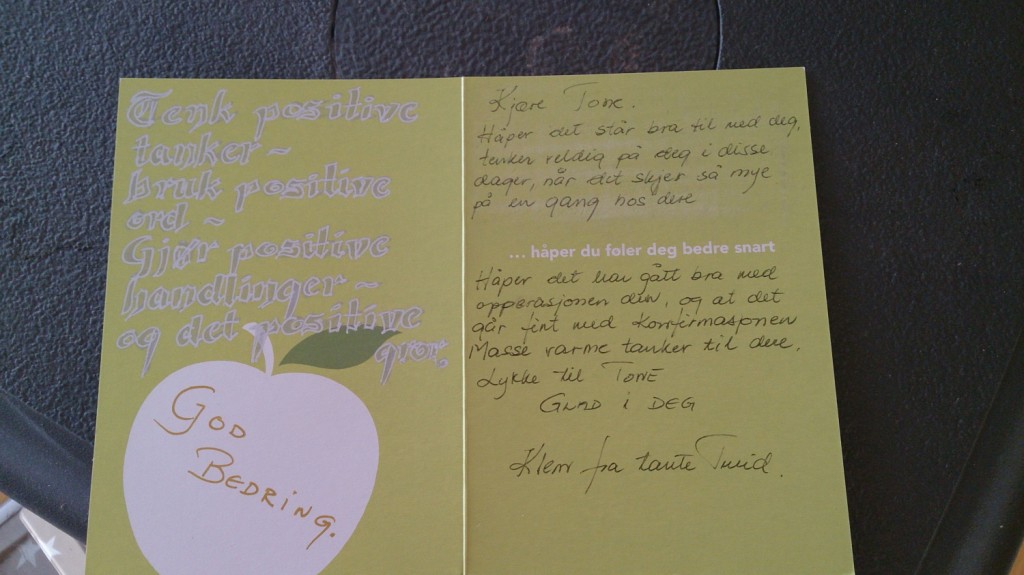 Tenk positive
tanker ~
bruk positive
ord ~
Gjør positive
handlinger ~
og det positive
gror.
GOD
BEDRING.
Kjære Tone.
Håper det står bra til med deg,
tenker veldig på deg i disse
dager, når det skjer så mye
på en gang hos dere
... håper du føler deg bedre snart
Håper det har gått bra med
opperasjonen din, og at det
går fint med Konfirmasjonen
Masse varme tanker til dere.
Lykke til TONE
GLAD i DEG
Klem fra tante Turid.